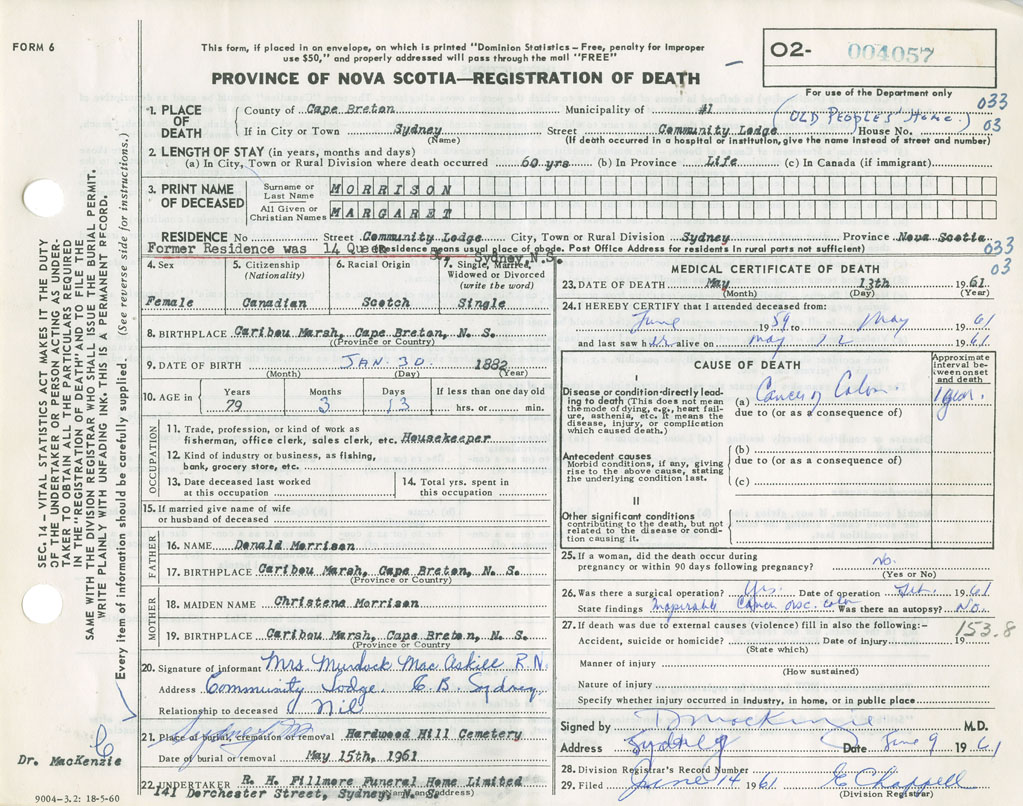 FORM 6
This form, if placed in an envelope, on which is printed "Dominion Statistics – Free, penalty for improper
use $50," and properly addressed will pass through the mail "FREE"
O2- 004057
PROVINCE OF NOVA SCOTIA—REGISTRATION OF DEATH
For use of the Department only
033
03
1. PLACE OF DEATH
County of Cape Breton Municipality of #1
(OLD PEOPLES' HOME.)
If in City or Town Sydney Street Community Lodge House No.
(Name) (If death occurred in a hospital or institution, give the name instead of street and number)
2. LENGTH OF STAY (in years, months and days)
(a) In City, Town or Rural Division where death occurred 60 yrs (b) In Province Life (c) In Canada (if immigrant)
3. PRINT NAME OF DECEASED
Surname or Last Name MORRISON
All Given or Christian Names MARGARET
RESIDENCE No Street Community Lodge City, Town or Rural Division Sydney Province Nova Scotia
Former Residence was 14 Queen St. Sydney, N.S.
(Residence means usual place of abode. Post Office Address for residents in rural parts not sufficient)
033
03
4. Sex Female
5. Citizenship (Nationality) Canadian
6. Racial Origin Scotch
7. Single, Married, Widowed or Divorced (write the word) Single
8. BIRTHPLACE Caribou Marsh, Cape Breton, N. S.
(Province or Country)
9. DATE OF BIRTH JAN. 30 1882
(Month) (Day) (Year)
10. AGE in Years 79 Months 3 Days 13 If less than one day old hrs. or min.
OCCUPATION
11. Trade, profession, or kind of work as
fisherman, office clerk, sales clerk, etc. Housekeeper
12. Kind of industry or business, as fishing,
bank, grocery store, etc.
13. Date deceased last worked
at this occupation
14. Total yrs. spent in
this occupation
15. If married give name of wife
or husband of deceased
FATHER
16. NAME Donald Morrison
17. BIRTHPLACE Caribou Marsh, Cape Breton, N. S.
(Province or Country)
MOTHER
18. MAIDEN NAME Christene Morrison
19. BIRTHPLACE Caribou Marsh, Cape Breton, N. S.
(Province or Country)
20. Signature of informant Mrs Murdock MacAskill R.N.
Address Community Lodge. C.B. Sydney
Relationship to deceased Nil
21. Place of burial, cremation or removal Hardwood Hill Cemetery
Sydney
Date of burial or removal May 15th, 1961
22. UNDERTAKER R. H. Fillmore Funeral Home Limited
141 Dorchester Street, Sydney, N. S.
(Name and address)
MEDICAL CERTIFICATE OF DEATH
23. DATE OF DEATH May 13th 1961
(Month) (Day) (Year)
24. I HEREBY CERTIFY that I attended deceased from:
June 1959 to May 1961
and last saw her alive on May 12 1961
CAUSE OF DEATH
Approximate interval between onset and death
I
Disease or condition directly leading to death (This does not mean
the mode of dying, e.g., heart failure, asthenia, etc. It means the
disease, injury, or complication
which caused death.)
(a) Cancer of Colon 1 year.
due to (or as a consequence of)
Antecedent causes
Morbid conditions, if any, giving
rise to the above cause, stating
the underlying condition last.
(b)
due to (or as a consequence of)
(c)
II
Other significant conditions
contributing to the death, but not
related to the disease or condition causing it.
25. If a woman, did the death occur during
pregnancy or within 90 days following pregnancy? No.
(Yes or No)
26. Was there a surgical operation? Yes. Date of operation 1961
State findings Inoperable Cancer colon Was there an autopsy? No.
27. If death was due to external causes (violence) fill in also the following:–
153.8
Accident, suicide or homicide? Date of injury 19
(State which)
Manner of injury
(How sustained)
Nature of injury
Specify whether injury occurred in industry, in home, or in public place
Signed by D MacKenzie M.D.
Address Sydney Date June 9 1961
28. Division Registrar's Record Number
29. Filed June 14 1961 E Chappell
(Division Registrar)
SEC. 14 – VITAL STATISTICS ACT MAKES IT THE DUTY
OF THE UNDERTAKER OR PERSON ACTING AS UNDERTAKER TO OBTAIN ALL THE PARTICULARS REQUIRED
IN THE "REGISTRATION OF DEATH" AND TO FILE THE
SAME WITH THE DIVISION REGISTRAR WHO SHALL ISSUE THE BURIAL PERMIT.
WRITE PLAINLY WITH UNFADING INK. THIS IS A PERMANENT RECORD.
Every item of information should be carefully supplied. (See reverse side for instructions.)
Dr. MacKenzie
9004-3.2: 18-5-60